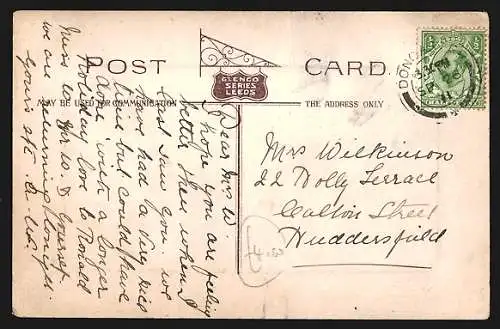 POST CARD
GLENCO
SERIES
LEEDS
MAY BE USED FOR COMMUNICATION
THE ADDRESS ONLY
DONC
Dear Mrs W.
I hope you are feeling
better than when I
last saw you. We
have had a very nice
time but could have
done with a longer
Holiday love to Ronald
Miss W, Mr W. &
we are returning tonight
yours
Mrs Wilkinson
22 Dolly Terrace
Calton Street
Huddersfield
£4.50